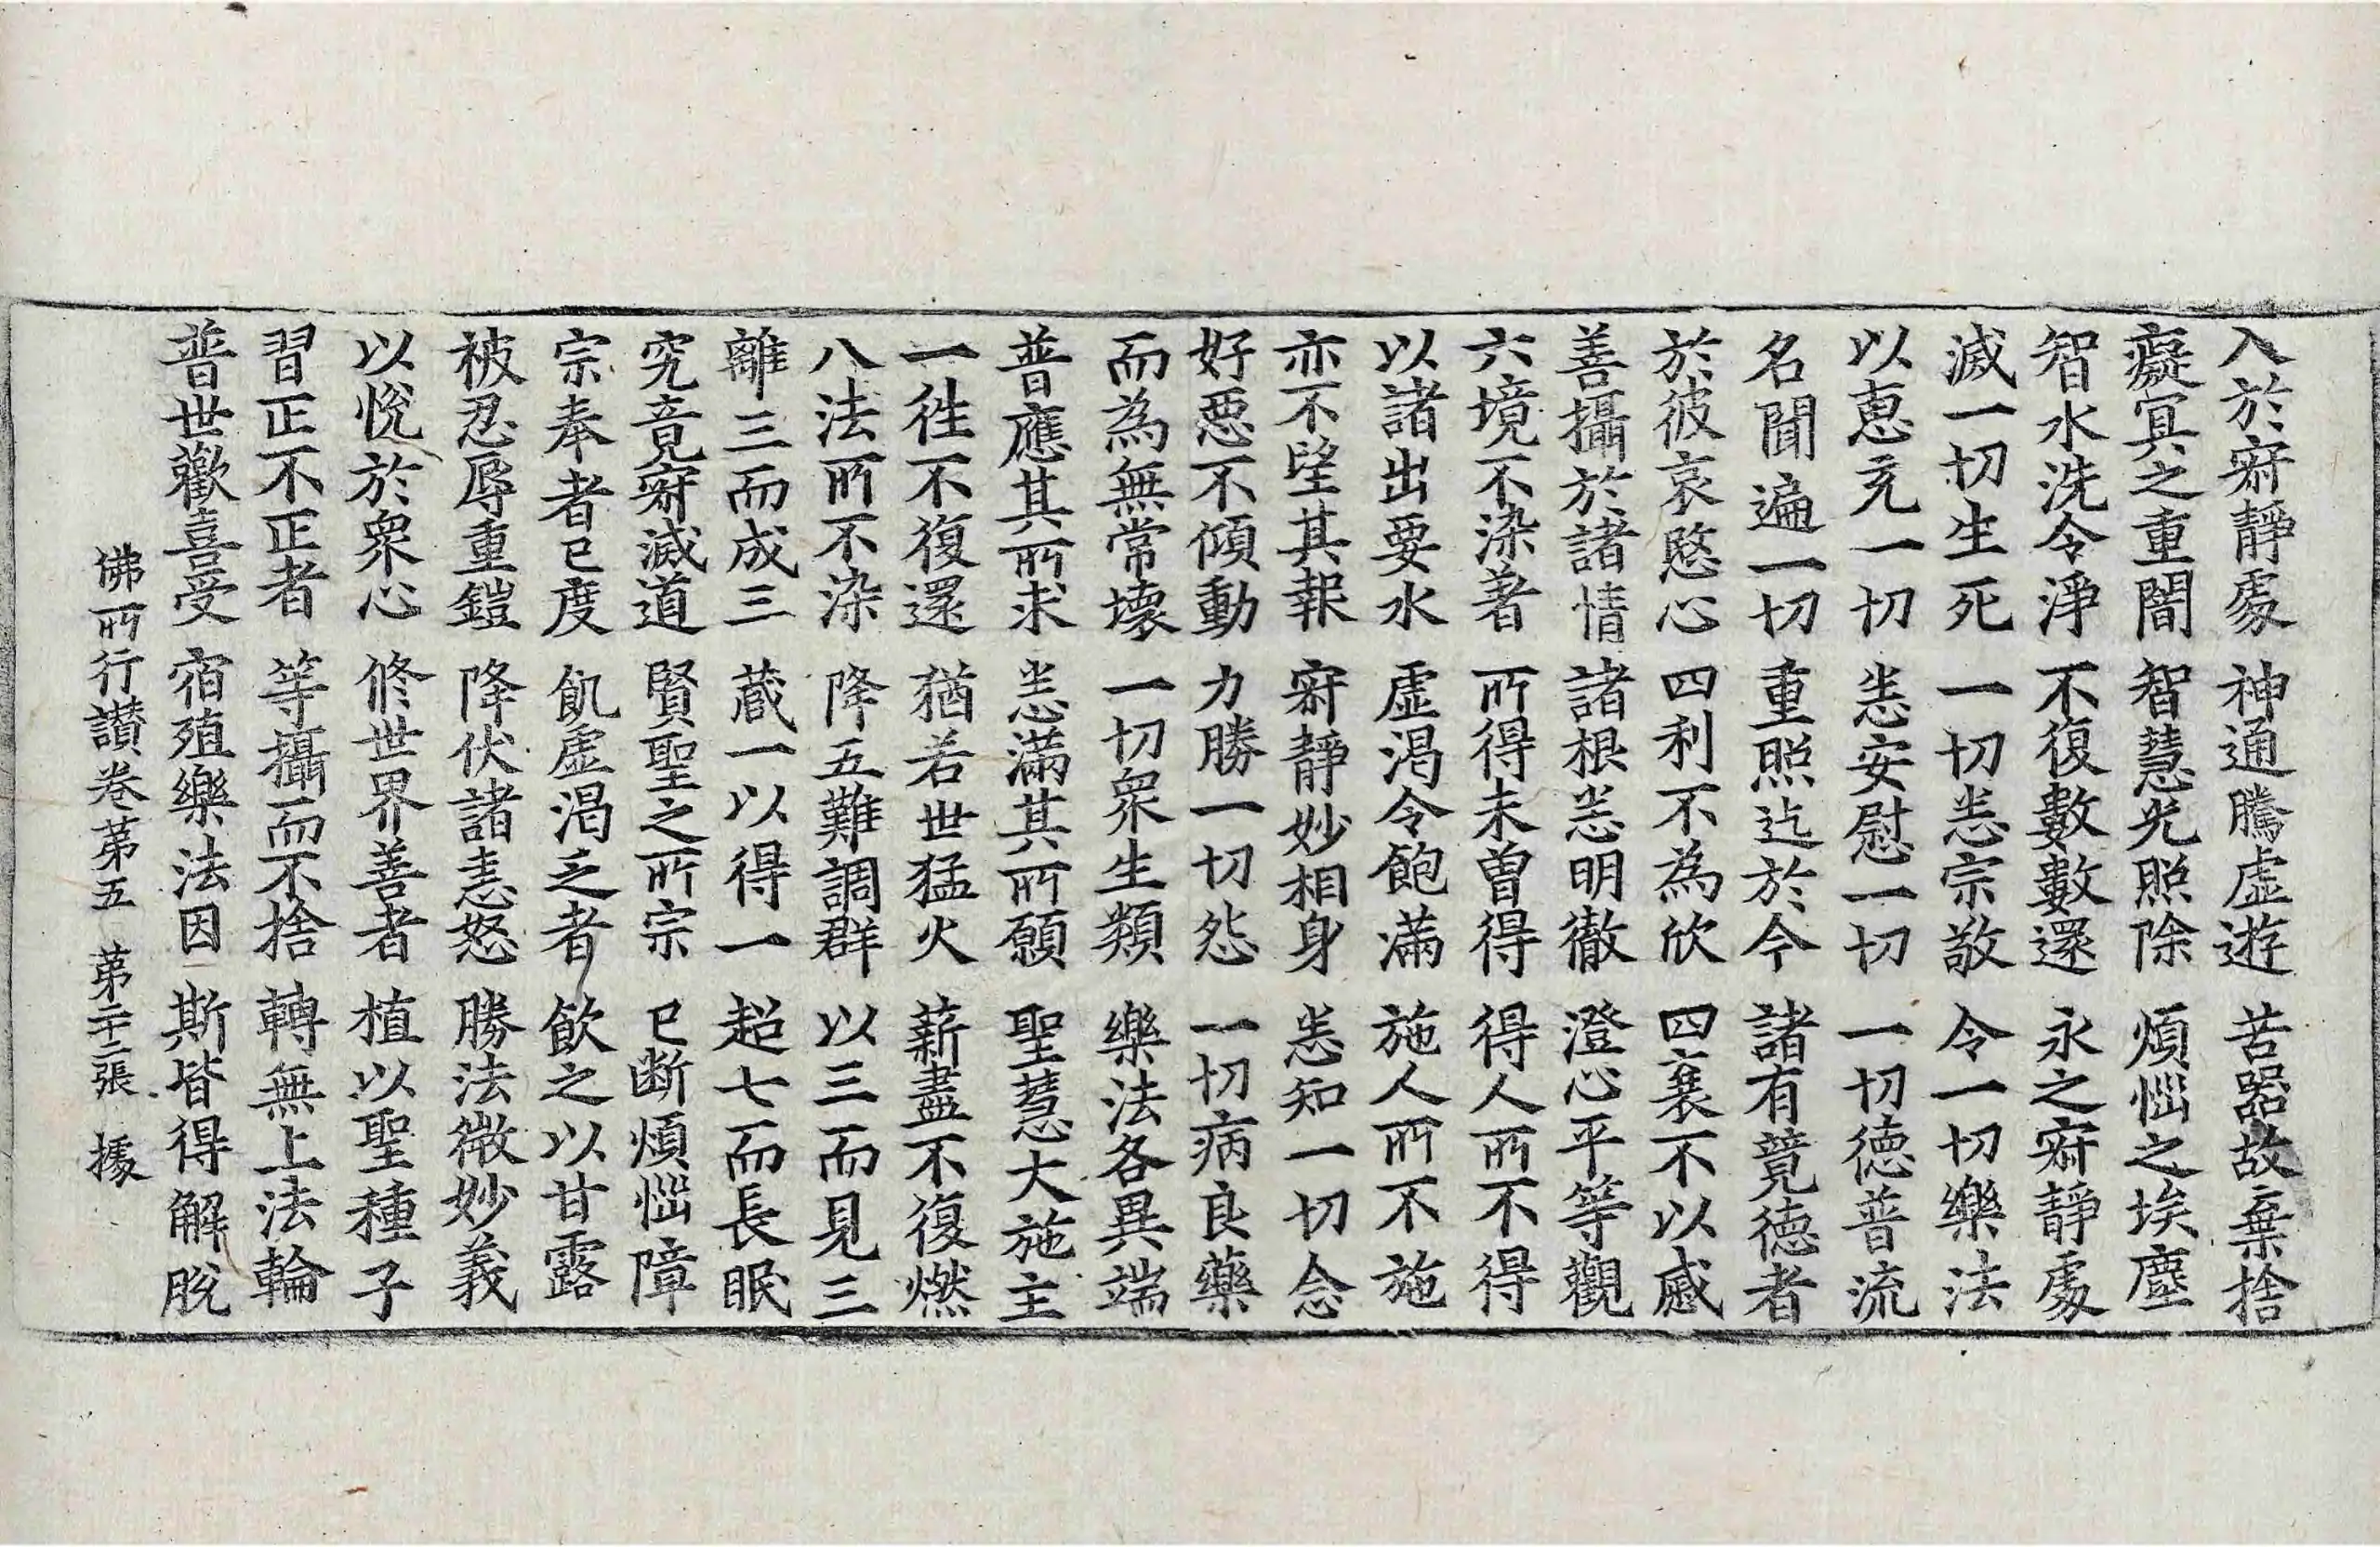 入於寂靜處　神通騰虛遊　苦器故棄捨
癡冥之重闇　智慧光照除　煩惱之埃塵
智水洗令淨　不復數數還　永之寂靜處
滅一切生死　一切悉宗敬　令一切樂法
以恵充一切　悉安慰一切　一切德普流
名聞遍一切　重照迄於今　諸有競德者
於彼哀愍心　四利不為欣　四衰不以慼
善攝於諸情　諸根悉明徹　澄心平等觀
六境不染著　所得未曾得　得人所不得
以諸出要水　虛渴令飽滿　施人所不施
亦不望其報　寂靜妙相身　悉知一切念
好惡不傾動　力勝一切怨　一切病良藥
而為無常壞　一切眾生類　樂法各異端
普應其所求　悉滿其所願　聖慧大施主
一往不復還　猶若世猛火　薪盡不復燃
八法所不染　降五難調群　以三而見三
離三而成三　藏一以得一　超七而長眠
究竟寂滅道　賢聖之所宗　已斷煩惱障
宗奉者已度　飢虛渴乏者　飲之以甘露
被忍辱重鎧　降伏諸恚怒　勝法微妙義
以悅於眾心　修世界善者　植以聖種子
習正不正者　等攝而不捨　轉無上法輪
普世歡喜受　宿殖樂法因　斯皆得解脫
佛所行讃卷第五　第二十二張　據